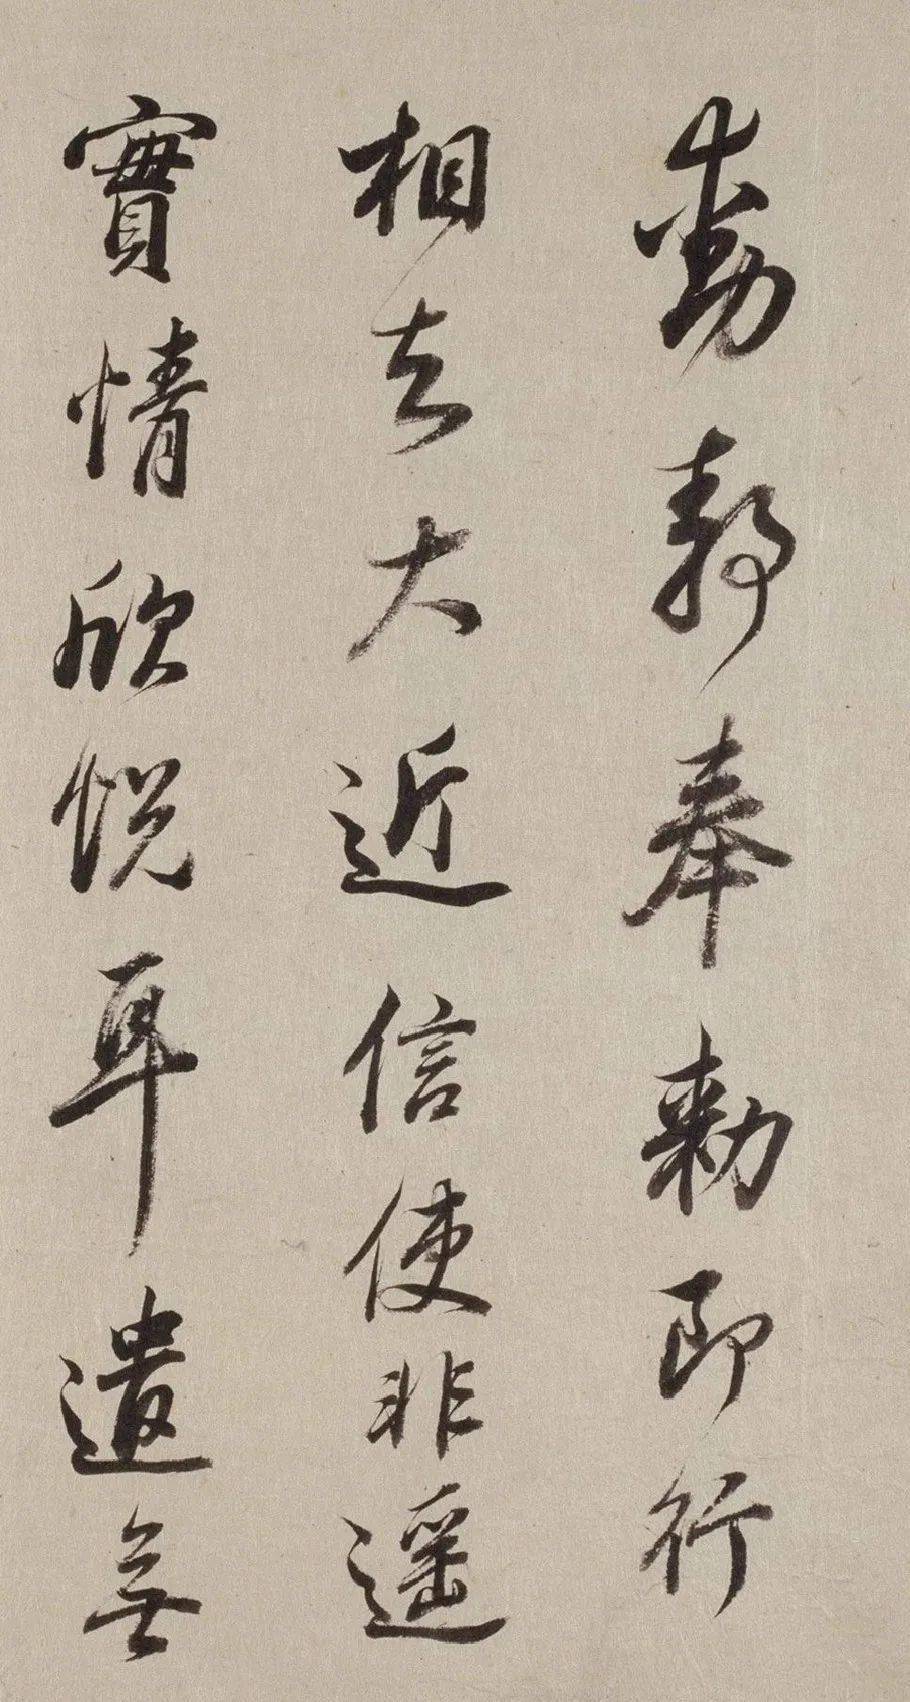 動靜奉勅即行
相去大近信使非遥
實情欣悅耳遣無